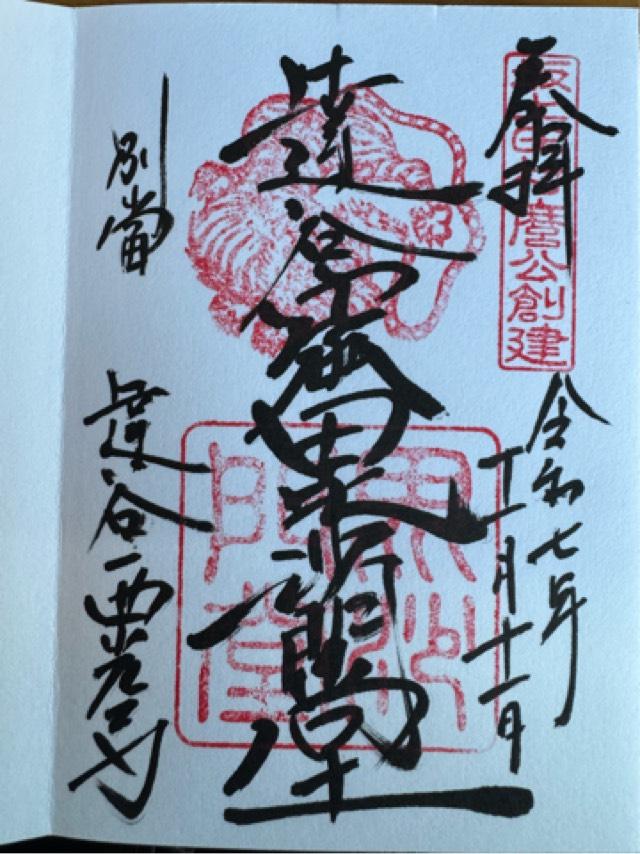 奉拝
坂上田村麿公創建
令和七年
十一月十一日
達谷窟毘沙門堂
毘沙
門堂
別當
達谷西光寺